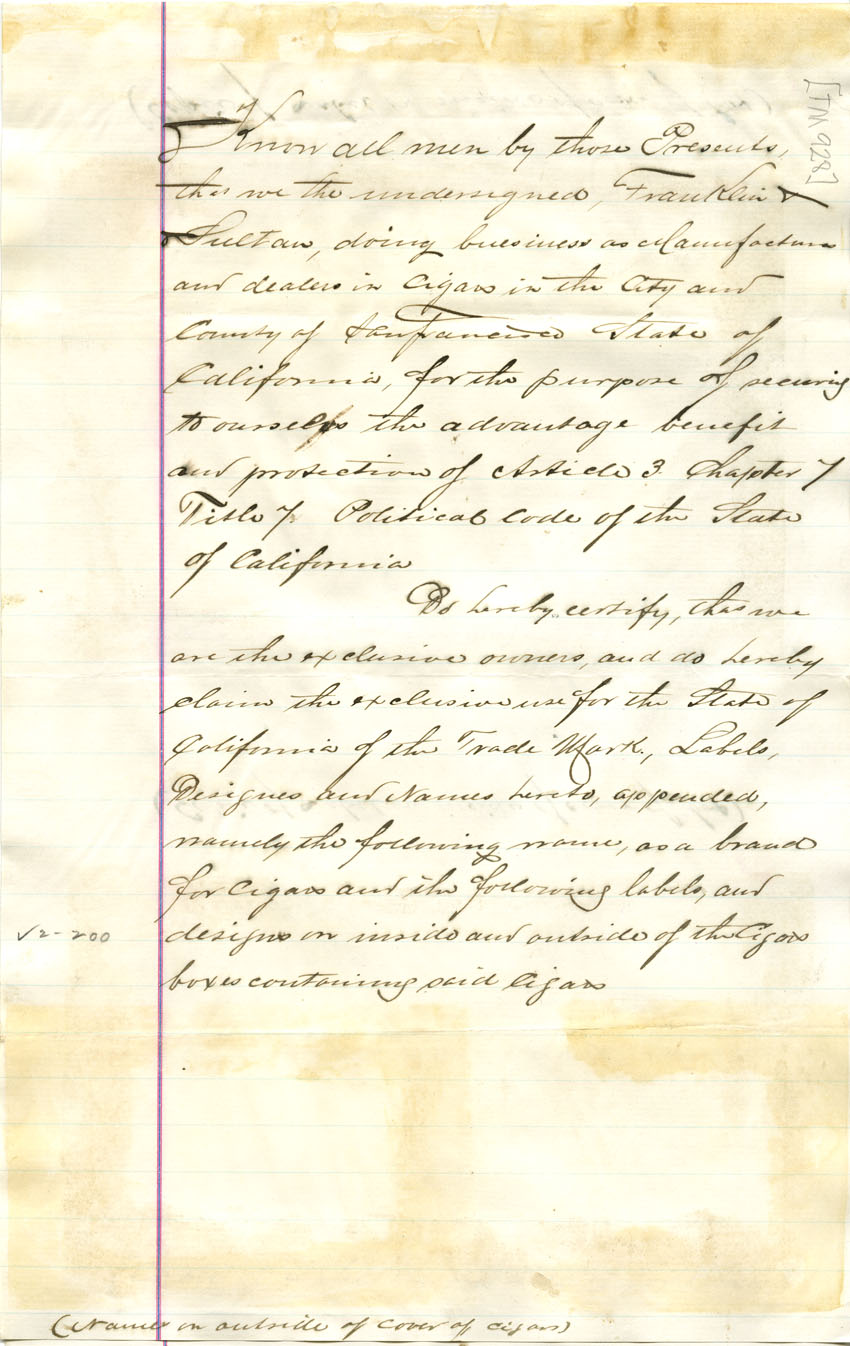 [TM 928]
Know all men by those Presents,
that we the undersigned, Franklin &
Sultan, doing buesiness as Manufacture
and dealers in Cigars in the City and
County of San Francisco State of
California, for the purpose of securing
to ourselvs the advantage benefit
and protection of Article 3 Chapter 7
Title 7. Political Code of the State
of California
Do hereby certify, that we
are the exclusive owners, and do hereby
claim the exclusive use for the State of
California of the Trade Mark, Labels,
Designes and Names hereto, appended,
namely the following name, as a brand
for Cigars and the following labels, and
√2-200
designs on inside and outside of the Cigars
boxes containing said Cigars
(Name on outside of cover of cigars)